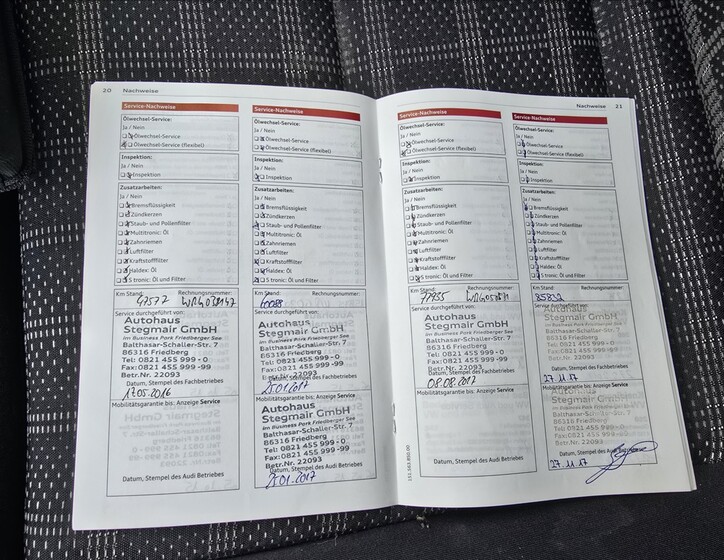 20 Nachweise
Service-Nachweise
Ölwechsel-Service:
Ja / Nein
Ölwechsel-Service
Ölwechsel-Service (flexibel)
Inspektion:
Ja / Nein
Inspektion
Zusatzarbeiten:
Ja / Nein
Bremsflüssigkeit
Zündkerzen
Staub- und Pollenfilter
Multitronic: Öl
Zahnriemen
Luftfilter
Kraftstofffilter
Haldex: Öl
S tronic: Öl und Filter
Km Stand: Rechnungsnummer:
47577
Service durchgeführt von:
Autohaus
Stegmair GmbH
im Business Park Friedberger See
Balthasar-Schaller-Str. 7
86316 Friedberg
Tel: 0821 455 999 - 0
Fax: 0821 455 999 -99
Betr.Nr. 22093
Datum, Stempel des Fachbetriebes
17.05.2016
Mobilitätsgarantie bis: Anzeige Service
Datum, Stempel des Audi Betriebes
Service-Nachweise
Ölwechsel-Service:
Ja / Nein
Ölwechsel-Service
Ölwechsel-Service (flexibel)
Inspektion:
Ja / Nein
Inspektion
Zusatzarbeiten:
Ja / Nein
Bremsflüssigkeit
Zündkerzen
Staub- und Pollenfilter
Multitronic: Öl
Zahnriemen
Luftfilter
Kraftstofffilter
Haldex: Öl
S tronic: Öl und Filter
Km Stand: Rechnungsnummer:
60088
Autohaus
Stegmair GmbH
im Business Park Friedberger See
Balthasar-Schaller-Str. 7
86316 Friedberg
Tel: 0821 455 999 - 0
Fax: 0821 455 999 -99
Betr.Nr. 22093
Datum, Stempel des Fachbetriebes
25.01.2017
Mobilitätsgarantie bis: Anzeige Service
Autohaus
Stegmair GmbH
im Business Park Friedberger See
Balthasar-Schaller-Str. 7
86316 Friedberg
Tel: 0821 455 999 - 0
Fax: 0821 455 999 -99
Betr.Nr. 22093
Datum, Stempel des Audi Betriebes
25.01.2017
Nachweise 21
Service-Nachweise
Ölwechsel-Service:
Ja / Nein
Ölwechsel-Service
Ölwechsel-Service (flexibel)
Inspektion:
Ja / Nein
Inspektion
Zusatzarbeiten:
Ja / Nein
Bremsflüssigkeit
Zündkerzen
Staub- und Pollenfilter
Multitronic: Öl
Zahnriemen
Luftfilter
Kraftstofffilter
Haldex: Öl
S tronic: Öl und Filter
Km Stand: Rechnungsnummer:
Service durchgeführt von:
Autohaus
Stegmair GmbH
im Business Park Friedberger See
Balthasar-Schaller-Str. 7
86316 Friedberg
Tel: 0821 455 999 - 0
Fax: 0821 455 999 -99
Betr.Nr. 22093
Datum, Stempel des Fachbetriebes
08.08.2017
Mobilitätsgarantie bis: Anzeige Service
Datum, Stempel des Audi Betriebes
Service-Nachweise
Ölwechsel-Service:
Ja / Nein
Ölwechsel-Service
Ölwechsel-Service (flexibel)
Inspektion:
Ja / Nein
Inspektion
Zusatzarbeiten:
Ja / Nein
Bremsflüssigkeit
Zündkerzen
Staub- und Pollenfilter
Multitronic: Öl
Zahnriemen
Luftfilter
Kraftstofffilter
Haldex: Öl
S tronic: Öl und Filter
Km Stand: Rechnungsnummer:
85832
Service durchgeführt von:
Autohaus
Stegmair GmbH
im Business Park Friedberger See
Balthasar-Schaller-Str. 7
86316 Friedberg
Tel: 0821 455 999 - 0
Fax: 0821 455 999 -99
Betr.Nr. 22093
Datum, Stempel des Fachbetriebes
27.11.17
Mobilitätsgarantie bis: Anzeige Service
Autohaus
Stegmair GmbH
im Business Park Friedberger See
Balthasar-Schaller-Str. 7
86316 Friedberg
Tel: 0821 455 999 - 0
Fax: 0821 455 999 -99
Betr.Nr. 22093
Datum, Stempel des Audi Betriebes
27.11.17